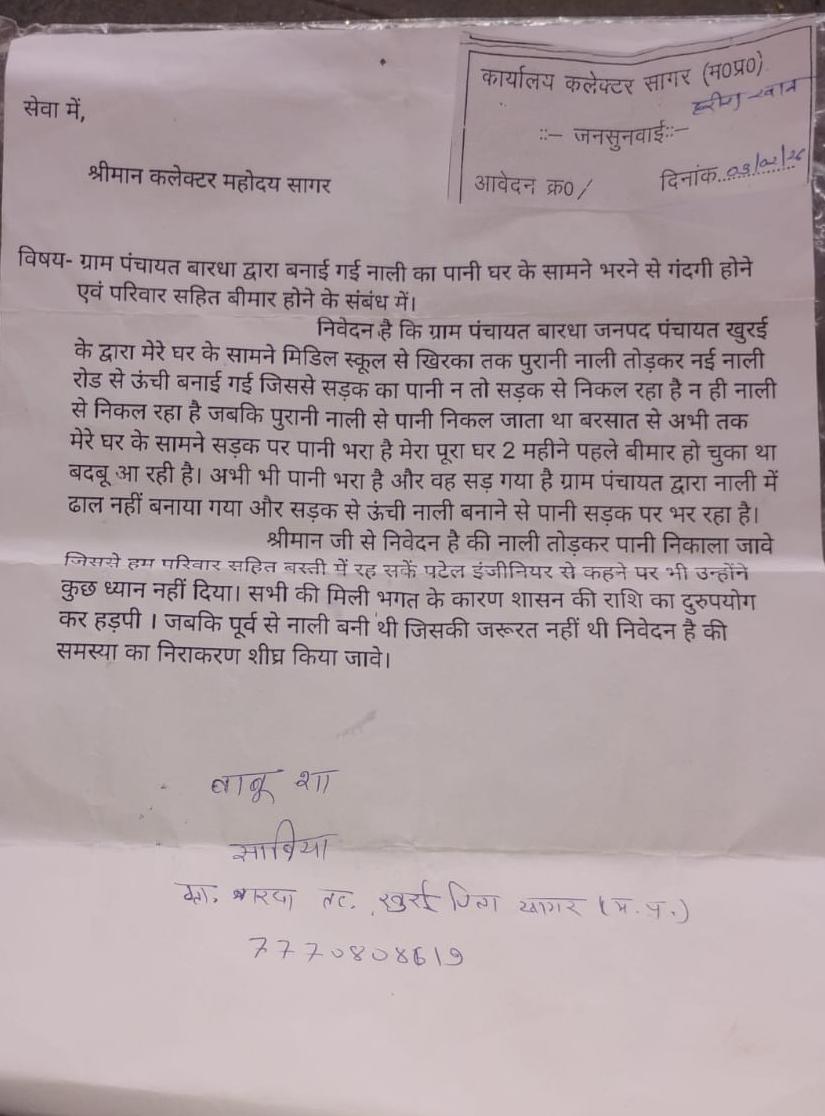 कार्यालय कलेक्टर सागर (म०प्र०)
::– जनसुनवाई::–
आवेदन क्र०/
दिनांक 03/02/26
सेवा में,
श्रीमान कलेक्टर महोदय सागर
विषय- ग्राम पंचायत बारधा द्वारा बनाई गई नाली का पानी घर के सामने भरने से गंदगी होने
एवं परिवार सहित बीमार होने के संबंध में।
निवेदन है कि ग्राम पंचायत बारधा जनपद पंचायत खुरई
के द्वारा मेरे घर के सामने मिडिल स्कूल से खिरका तक पुरानी नाली तोड़कर नई नाली
रोड से ऊंची बनाई गई जिससे सड़क का पानी न तो सड़क से निकल रहा है न ही नाली
से निकल रहा है जबकि पुरानी नाली से पानी निकल जाता था बरसात से अभी तक
मेरे घर के सामने सड़क पर पानी भरा है मेरा पूरा घर 2 महीने पहले बीमार हो चुका था
बदबू आ रही है। अभी भी पानी भरा है और वह सड़ गया है ग्राम पंचायत द्वारा नाली में
ढाल नहीं बनाया गया और सड़क से ऊंची नाली बनाने से पानी सड़क पर भर रहा है।
श्रीमान जी से निवेदन है की नाली तोड़कर पानी निकाला जावे
जिससे हम परिवार सहित बस्ती में रह सकें पटेल इंजीनियर से कहने पर भी उन्होंने
कुछ ध्यान नहीं दिया। सभी की मिली भगत के कारण शासन की राशि का दुरुपयोग
कर हड़पी । जबकि पूर्व से नाली बनी थी जिसकी जरूरत नहीं थी निवेदन है की
समस्या का निराकरण शीघ्र किया जावे।
बाबू शा
साबिया
बारदा तह. खुरई जिला सागर (म.प्र.)
7770808619